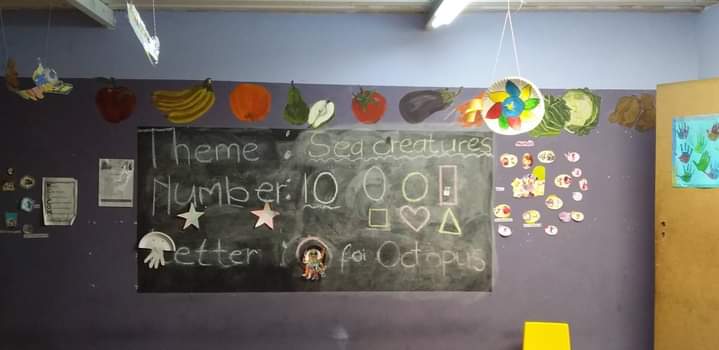 Theme : Sea creatures
Number: 10
Letter : O for Octopus